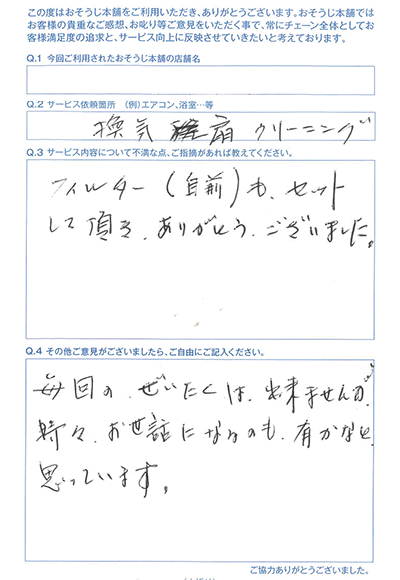 この度はおそうじ本舗をご利用いただき、ありがとうございます。おそうじ本舗では
お客様の貴重なご感想、お叱り等ご意見をいただく事で、常にチェーン全体としてお
客様満足度の追求と、サービス向上に反映させていきたいと考えております。
Q.1 今回ご利用されたおそうじ本舗の店舗名
Q.2 サービス依頼箇所 (例)エアコン、浴室…等
換気扇クリーニング
Q.3 サービス内容について不満な点、ご指摘があれば教えてください。
フィルター(自前)も、セット
して頂き、ありがとう、ございました。
Q.4 その他ご意見がございましたら、ご自由にご記入ください。
毎回の、ぜいたくは、出来ませんが、
時々、お世話になるのも、有かなと
思っています。
ご協力ありがとうございました。